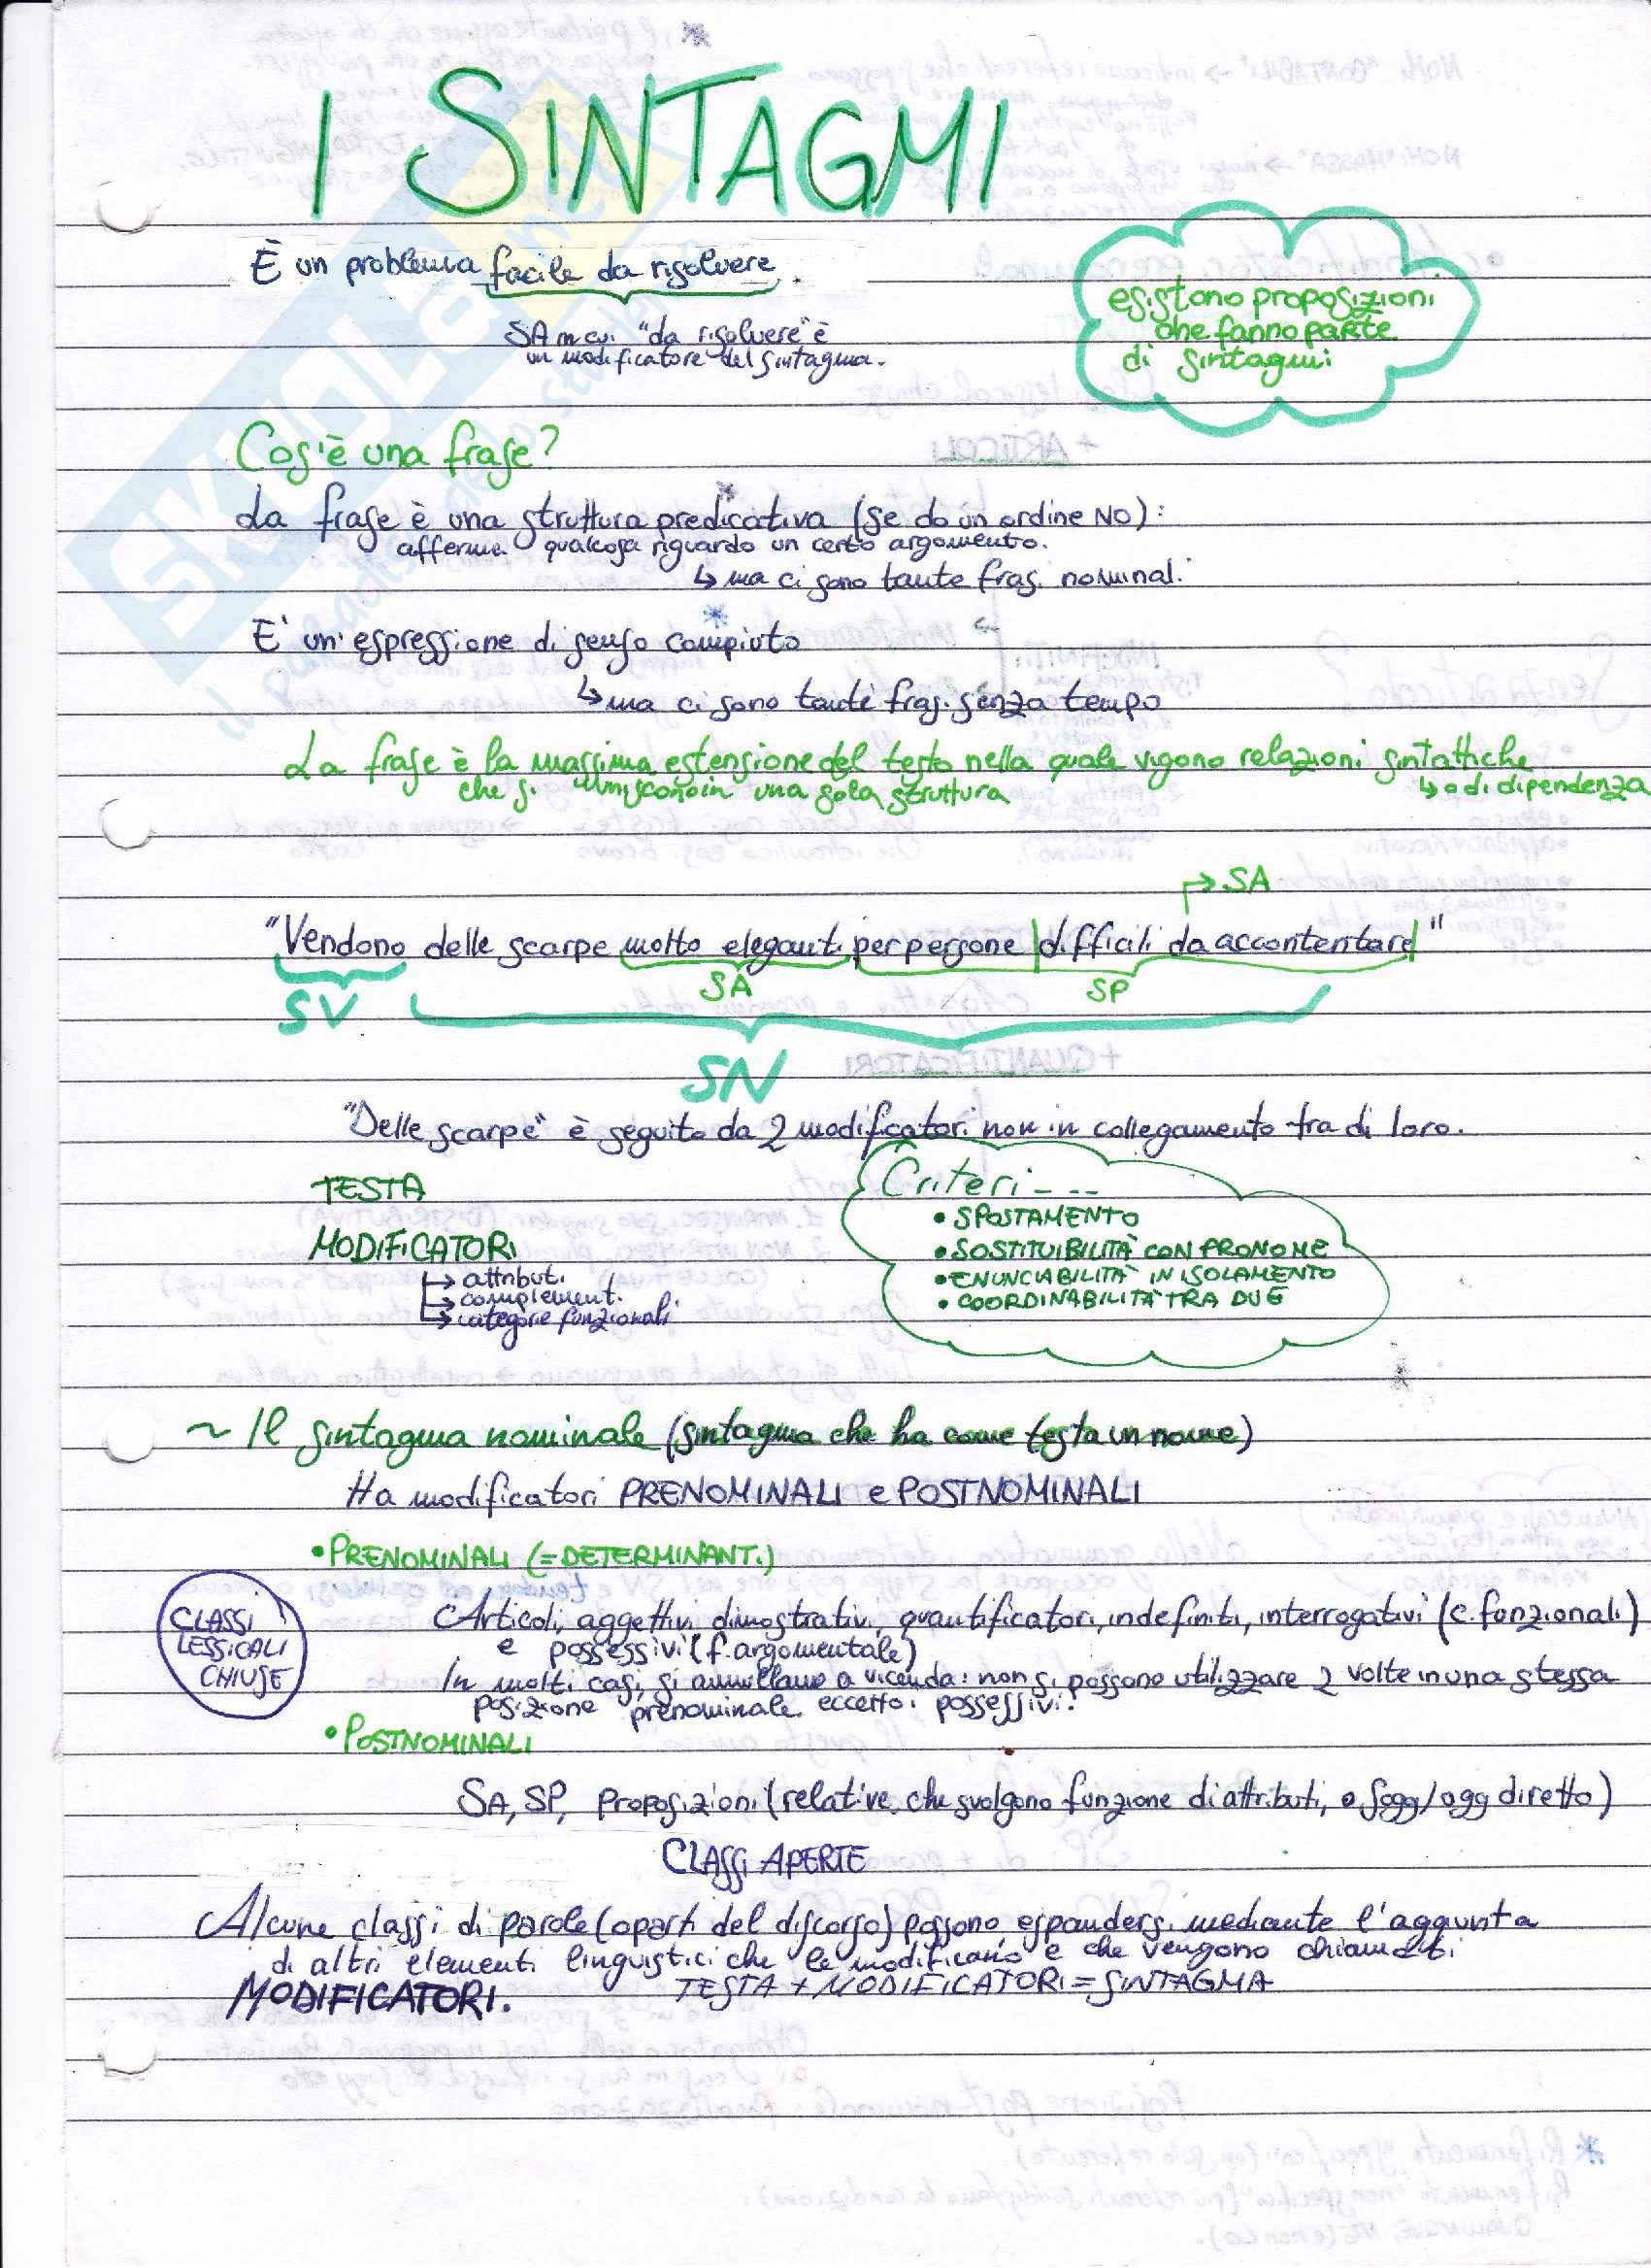 I SINTAGMI
È un problema facile da risolvere.
SA in cui "da risolvere" è
un modificatore del sintagma.
esistono proposizioni
che fanno parte
di sintagmi
Cos'è una frase?
La frase è una struttura predicativa (se do un ordine NO):
afferma qualcosa riguardo un certo argomento.
↳ ma ci sono tante frasi nominali.
E' un'espressione di senso compiuto
↳ ma ci sono tante frasi senza tempo
La frase è la massima estensione del testo nella quale vigono relazioni sintattiche
↳ o di dipendenza
che si uniscono in una sola struttura
→ SA
"Vendono delle scarpe molto eleganti per persone difficili da accontentare"
SA SP
SV
SN
"Delle scarpe" è seguito da 2 modificatori non in collegamento tra di loro.
TESTA
MODIFICATORI
↳ attributi
↳ complementi
↳ categorie funzionali
Criteri - - -
• SPOSTAMENTO
• SOSTITUIBILITÀ CON PRONOME
• ENUNCIABILITÀ IN ISOLAMENTO
• COORDINABILITÀ TRA DUE
~ Il sintagma nominale (sintagma che ha come testa un nome)
Ha modificatori PRENOMINALI e POSTNOMINALI
• PRENOMINALI (= DETERMINANTI)
CLASSI
LESSICALI
CHIUSE
Articoli, aggettivi dimostrativi, quantificatori, indefiniti, interrogativi (c. funzionali)
e possessivi (f. argomentale)
In molti casi, si annullano a vicenda: non si possono utilizzare 2 volte in una stessa
posizione prenominale, eccetto i possessivi.
• POSTNOMINALI
SA, SP, Proposizioni (relative, che svolgono funzione di attributi, o sogg/ogg diretto)
CLASSI APERTE
Alcune classi di parole (o parti del discorso) possono espandersi mediante l'aggiunta
di altri elementi linguistici che le modificano e che vengono chiamati
MODIFICATORI. TESTA + MODIFICATORI = SINTAGMA
SKUOLA.net
il paradiso dello studente